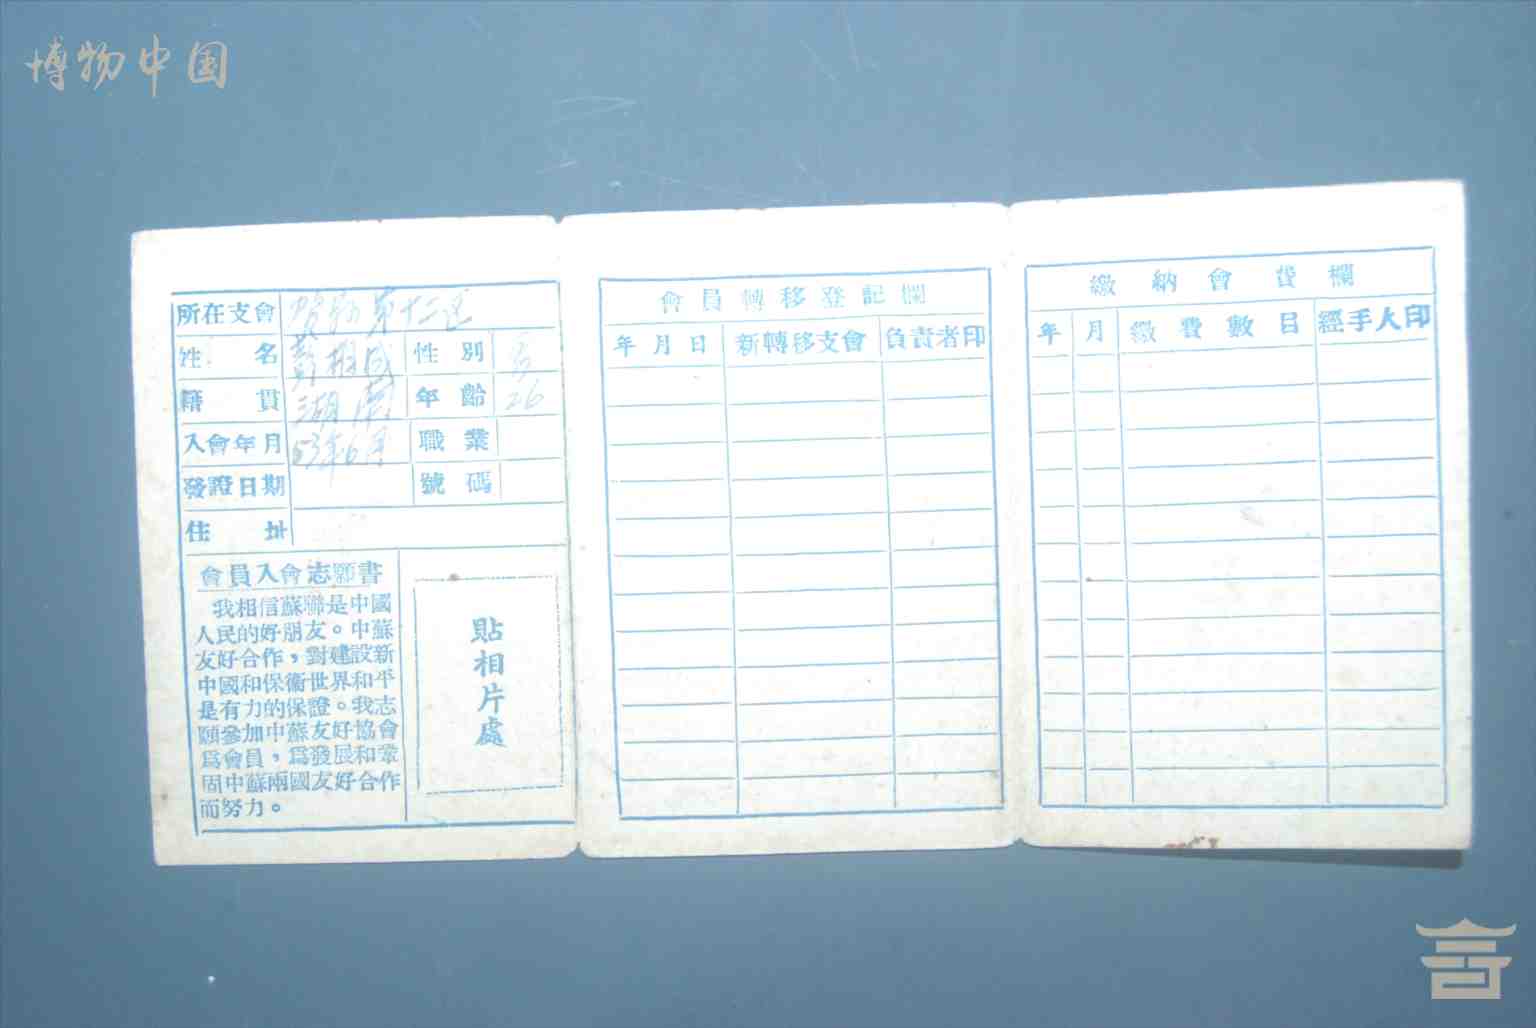 博物中国
所在支會 賀縣第十二区
姓名 彭楊成 性別 男
籍貫 湖南 年齡 26
入會年月 53年6月 職業
發證日期 號碼
住址
會員入會志願書
我相信蘇聯是中國
人民的好朋友。中蘇
友好合作，對建設新
中國和保衞世界和平
是有力的保證。我志
願參加中蘇友好協會
爲會員，爲發展和鞏
固中蘇兩國友好合作
而努力。
貼相片處
會員轉移登記欄
年月日 新轉移支會 負責者印
繳納會費欄
年 月 繳費數目 經手人印